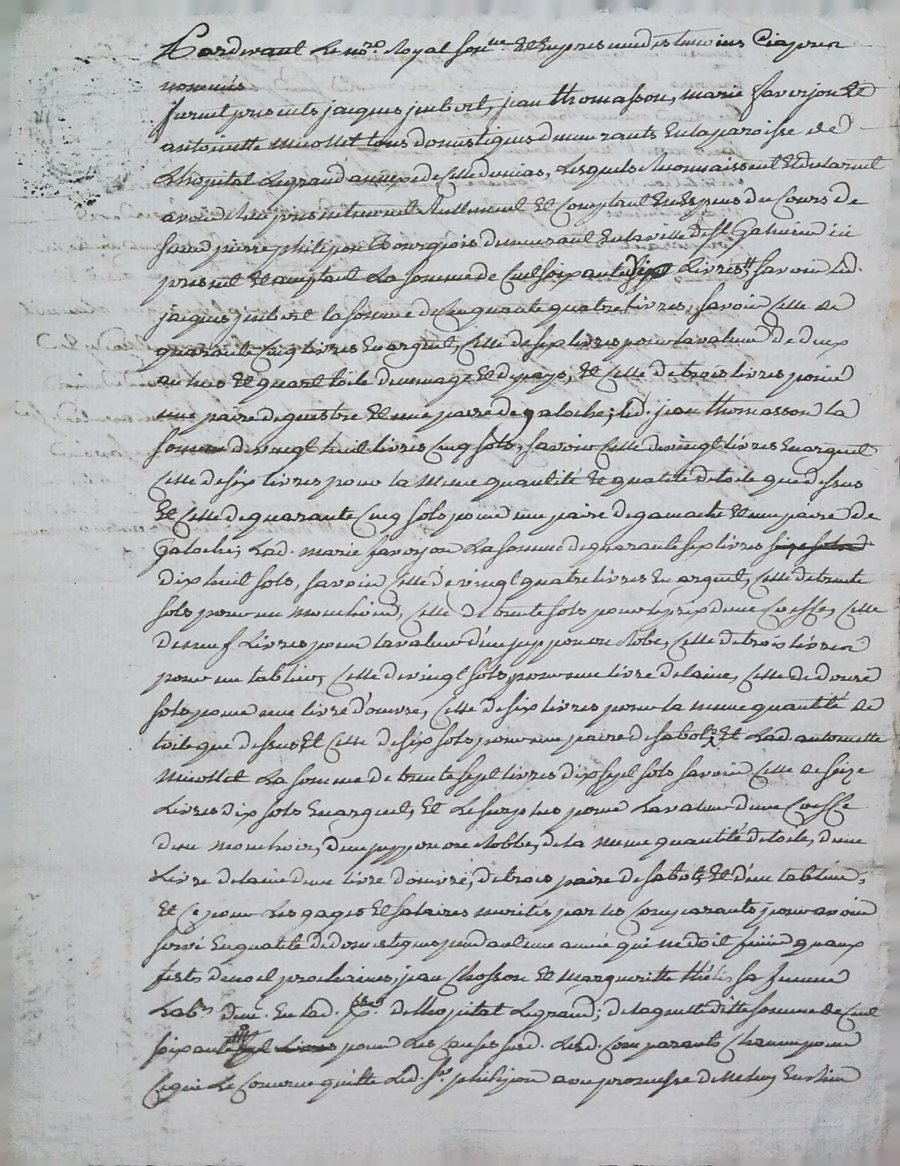 Pardevant le no.re royal sou.né et en presence des temoins Ciapres
nommés
furent presents jacques jmbert, jean thomasson, marie faverjon et
antoinette micollet tous domestiques demeurants en la paroisse de
Lhopital Legrand lesquels reconnaissent et declarent
avoir receu presentement reellement et Comptant en Especes du Cours de
sieur pierre philipon Bourgeois demeurant en la ville de St Galmier ici
present et acceptant La somme de Cent soixante Livres savoir led.
jacques jmbert la somme de Cinquante quatre livres, savoir Celle de
quarante Cinq livres En argent, Celle de six livres pour la valeur de deux
aunes et quart toile de menage et de pays, et Celle de trois livres pour
une paire de guestre et une paire de galoche; led. jean thomasson la
somme de vingt huit livres Cinq sols, savoir Celle de vingt livres En argent
Celle de six livres pour la meme quantité et qualité de toile que dessus
et Celle de quarante Cinq sols pour une paire de gamache et une paire de
Galoche; Lad. marie faverjon La somme de quarante six livres
dix huit sols, savoir Celle de vingt quatre livres En argent, Celle de trente
sols pour un mouchoir, Celle de trente sols pour le prix d'une Coeffe, Celle
de neuf Livres pour la valeur d'un juppon ou Robe, Celle de trois livres
pour un tablier, Celle de vingt sols pour une livre de laine, Celle de douze
sols pour une livre d'oeuvre, Celle de six livres pour la meme quantité de
toile que dessus et Celle de six sols pour une paire de sabots, et Lad. antoinette
micollet La somme de trente sept livres dix sept sols savoir Celle de seize
Livres dix sols En argent, et Le surplus pour La valeur d'une Coeffe
d'un mouchoir, d'un juppon ou Robbe, de la meme quantité de toile, d'une
Livre de laine d'une livre d'oeuvre, de trois paire de sabots, et d'un tablier;
et Ce pour Les gages et salaires merités par les Comparants pour avoir
servi En qualité de domestiques pendant une année qui ne doit finir qu'aux
festes de noel prochaines, jean Chosson et marguerite sa femme
Lab.rs dem. En lad. p.sse de Lhopital Legrand; de laquelle ditte somme de Cent
soixante pour Les Causes susd. Lesd. Comparants Chacun pour
Ce qui Le Concerne quitte Led. S.r philipon avec promesse de